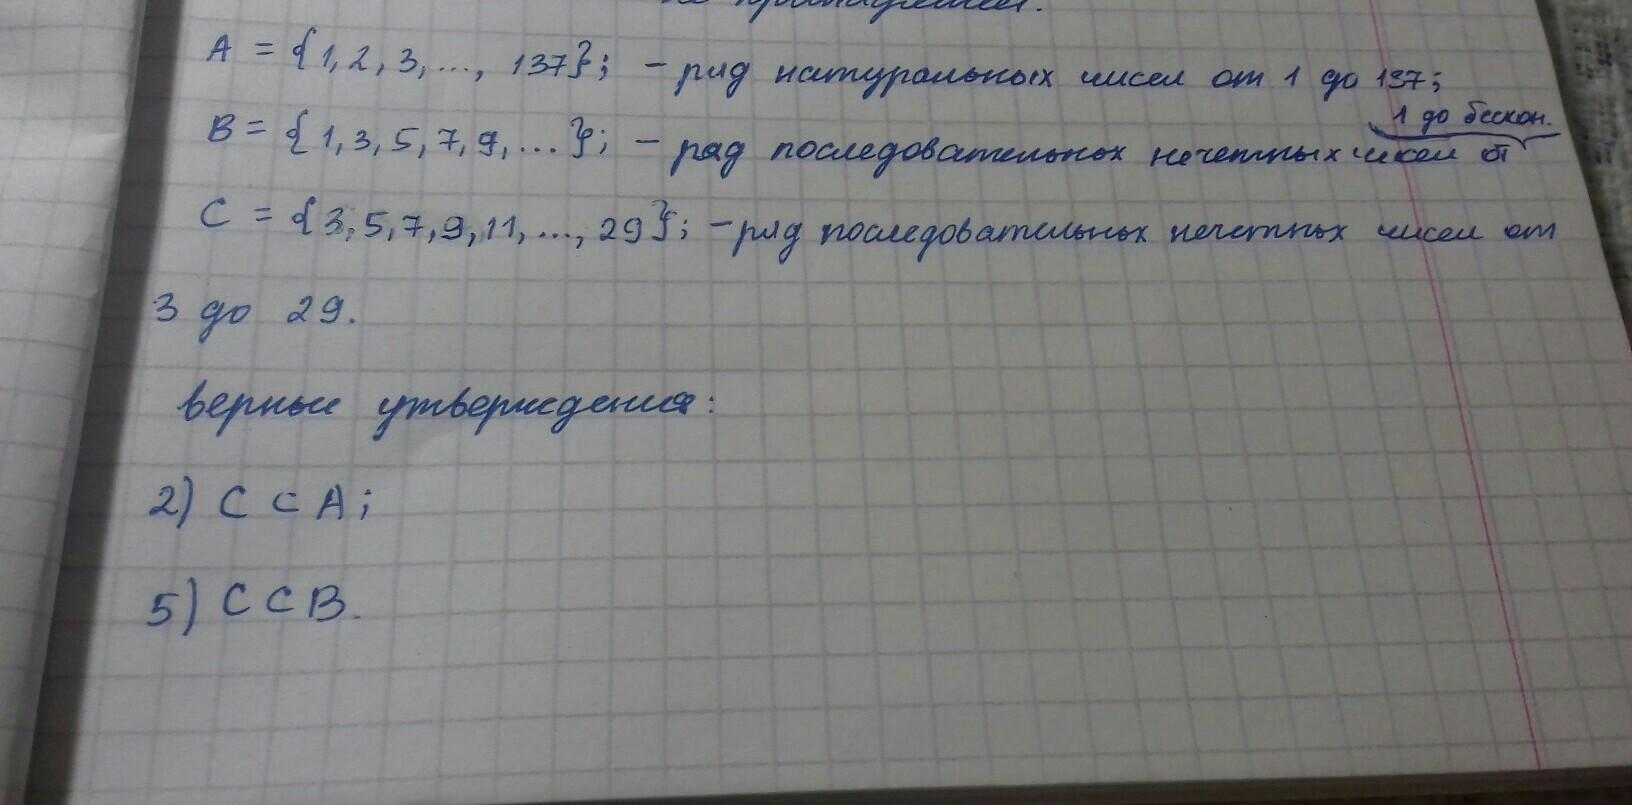 A = {1, 2, 3, ..., 137}; - ряд натуральных чисел от 1 до 137;
1 до бескон.
B = {1, 3, 5, 7, 9, ... }; - ряд последовательных нечетных чисел от
C = {3, 5, 7, 9, 11, ..., 29}; - ряд последовательных нечетных чисел от
3 до 29.
верные утверждения:
2) C ⊂ A;
5) C ⊂ B.